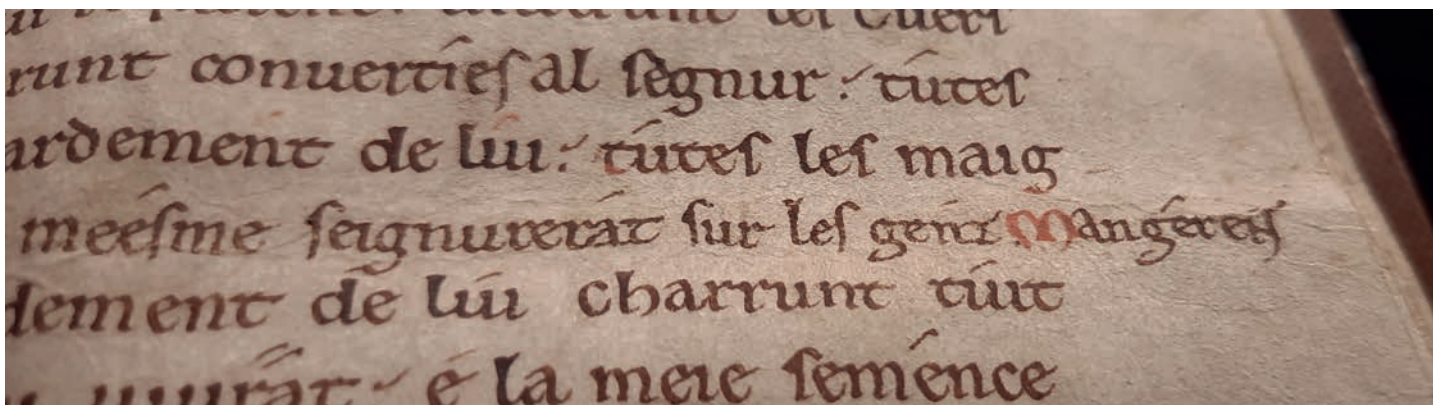 runt conuertíeſ al ſegnur : túteſ
ardement de lúi : túteſ leſ maig
meéſme ſeignurerát ſur leſ genz Mangeréiſ
dement dé lúi charrunt túit
uiurát · é la meíe ſeménce